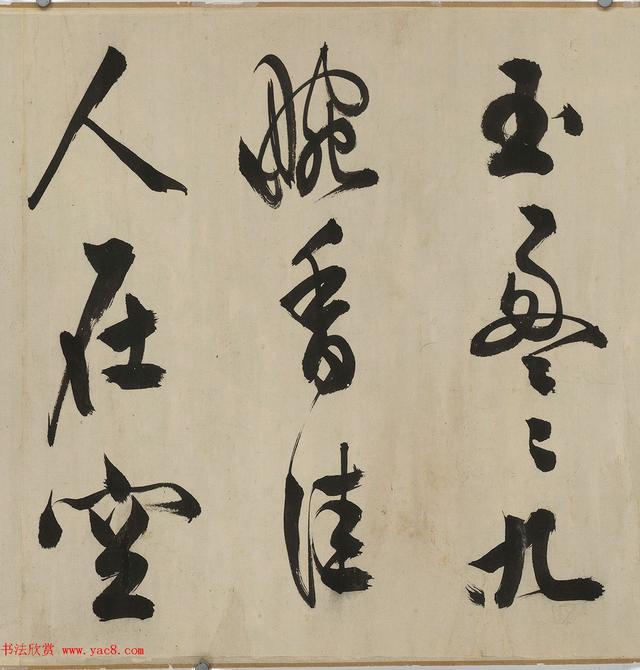 玉盈〻九
畹香佳
人在空
书法欣赏 www.yac8.com